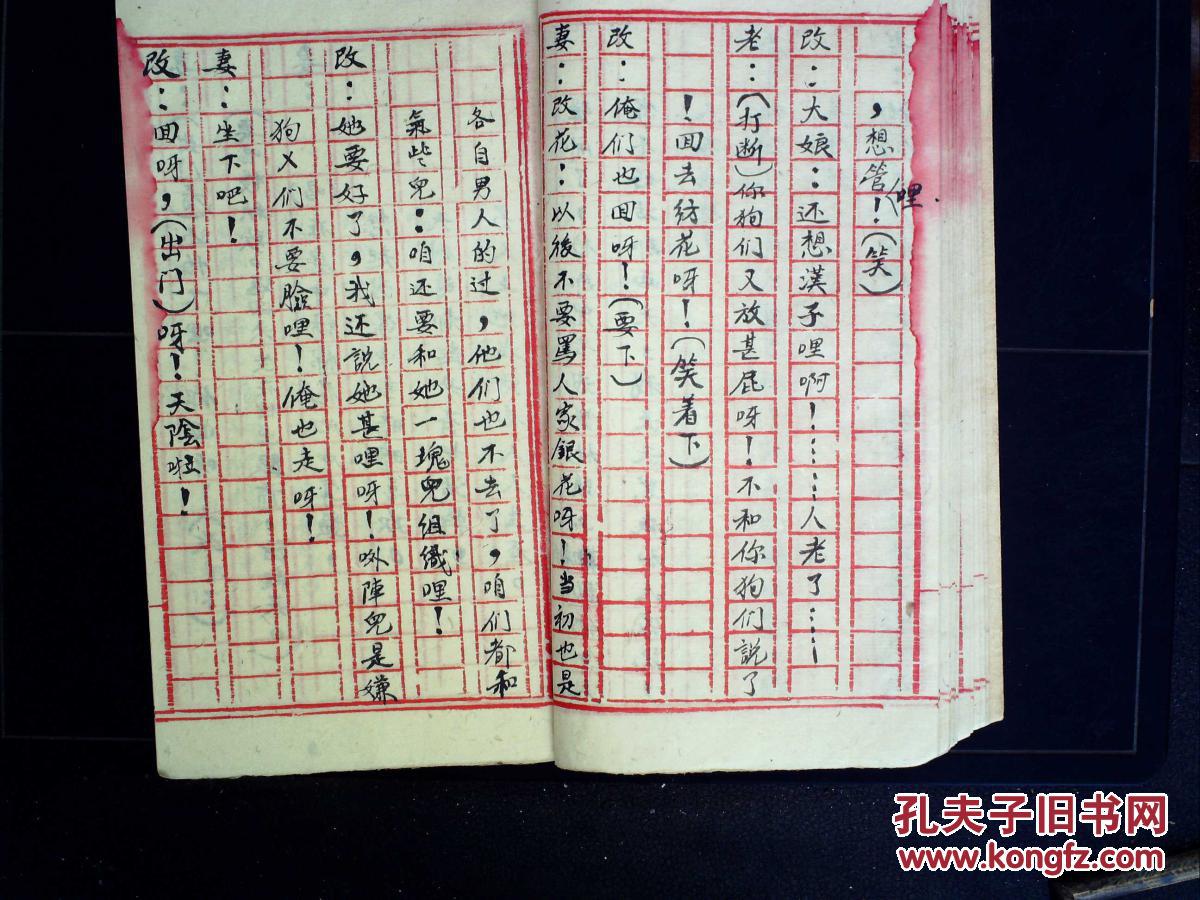 ，想管哩！（笑）
改：大娘：还想漢子哩啊！……人老了……
老：（打断）你狗们又放甚屁呀！不和你狗们説了
！回去纺花呀！（笑着下）
改：俺们也回呀！（要下）
妻：改花：以後不要罵人家銀花呀！当初也是
各自男人的过，他们也不去了，咱们都和
氣些兒：咱还要和她一塊兒组織哩！
改：她要好了，我还説她甚哩呀！外陣兒是嫌
狗×们不要臉哩！俺也走呀！
妻：坐下吧！
改：回呀，（出门）呀！天陰啦！
孔夫子旧书网
www.kongfz.com